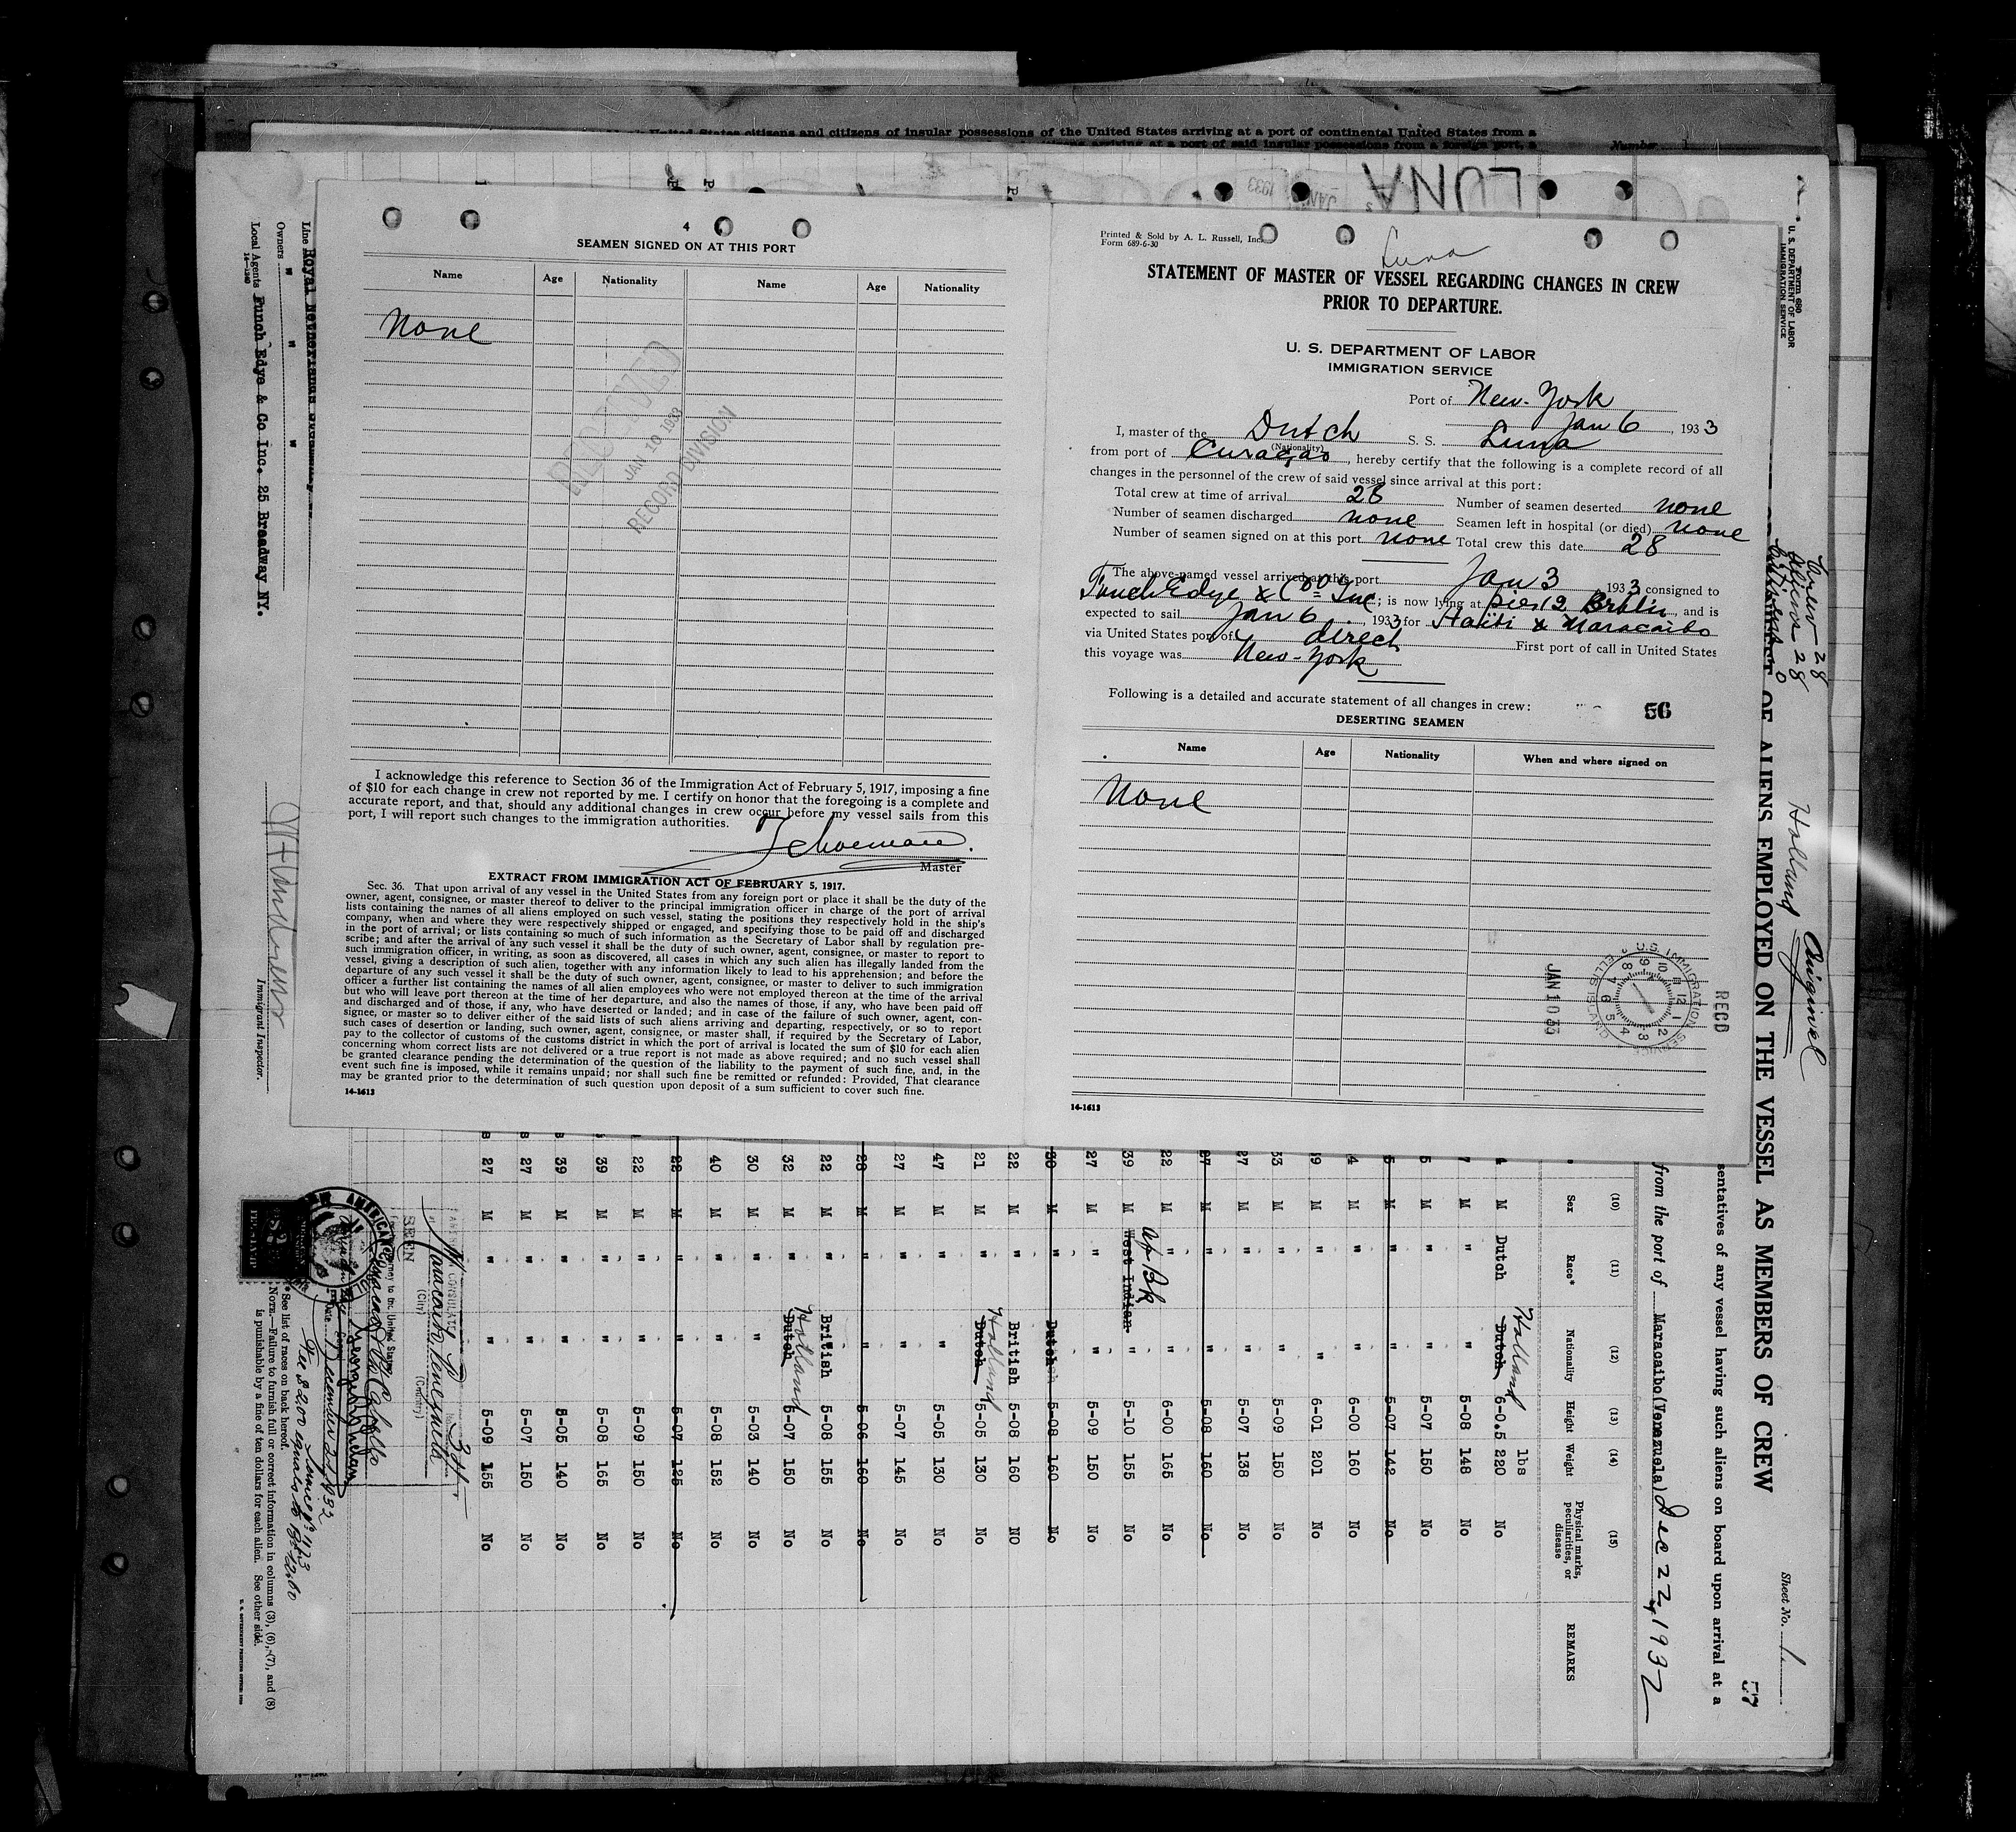 United States citizens and citizens of insular possessions of the United States arriving at a port of continental United States from a
Number 1
LUNA
JAN 1933
4
SEAMEN SIGNED ON AT THIS PORT
Name Age Nationality Name Age Nationality
None
RECEIVED
JAN 10 1933
RECORD DIVISION
I acknowledge this reference to Section 36 of the Immigration Act of February 5, 1917, imposing a fine
of $10 for each change in crew not reported by me. I certify on honor that the foregoing is a complete and
accurate report, and that, should any additional changes in crew occur before my vessel sails from this
port, I will report such changes to the immigration authorities.
Master
EXTRACT FROM IMMIGRATION ACT OF FEBRUARY 5, 1917.
Sec. 36. That upon arrival of any vessel in the United States from any foreign port or place it shall be the duty of the
owner, agent, consignee, or master thereof to deliver to the principal immigration officer in charge of the port of arrival
lists containing the names of all aliens employed on such vessel, stating the positions they respectively hold in the ship's
company, when and where they were respectively shipped or engaged, and specifying those to be paid off and discharged
in the port of arrival; or lists containing so much of such information as the Secretary of Labor shall by regulation pre-
scribe; and after the arrival of any such vessel it shall be the duty of such owner, agent, consignee, or master to report to
such immigration officer, in writing, as soon as discovered, all cases in which any such alien has illegally landed from the
vessel, giving a description of such alien, together with any information likely to lead to his apprehension; and before the
departure of any such vessel it shall be the duty of such owner, agent, consignee, or master to deliver to such immigration
officer a further list containing the names of all alien employees who were not employed thereon at the time of the arrival
but who will leave port thereon at the time of her departure, and also the names of those, if any, who have been paid off
and discharged and of those, if any, who have deserted or landed; and in case of the failure of such owner, agent, con-
signee, or master so to deliver either of the said lists of such aliens arriving and departing, respectively, or so to report
such cases of desertion or landing, such owner, agent, consignee, or master shall, if required by the Secretary of Labor,
pay to the collector of customs of the customs district in which the port of arrival is located the sum of $10 for each alien
concerning whom correct lists are not delivered or a true report is not made as above required; and no such vessel shall
be granted clearance pending the determination of the question of the liability to the payment of such fine, and, in the
event such fine is imposed, while it remains unpaid; nor shall such fine be remitted or refunded: Provided, That clearance
may be granted prior to the determination of such question upon deposit of a sum sufficient to cover such fine.
14-1613
Printed & Sold by A. L. Russell, Inc.
Form 689-6-30
Luna
STATEMENT OF MASTER OF VESSEL REGARDING CHANGES IN CREW
PRIOR TO DEPARTURE.
U. S. DEPARTMENT OF LABOR
IMMIGRATION SERVICE
Port of New-York
Jan 6, 1933
I, master of the Dutch S. S. Luna
(Nationality)
from port of Curaçao, hereby certify that the following is a complete record of all
changes in the personnel of the crew of said vessel since arrival at this port:
Total crew at time of arrival 28 Number of seamen deserted none
Number of seamen discharged none Seamen left in hospital (or died) none
Number of seamen signed on at this port none Total crew this date 28
The above-named vessel arrived at this port Jan 3 1933 consigned to
Funch Edye & Co Inc; is now lying at pier 12 Brklin, and is
expected to sail Jan 6, 1933 for Haiti & Maracaibo
via United States port of direct First port of call in United States
this voyage was New-York
Following is a detailed and accurate statement of all changes in crew:
56
DESERTING SEAMEN
Name Age Nationality When and where signed on
None
U.S. IMMIGRATION SERVICE ELLIS ISLAND
JAN 10 33
RECD
14-1613
Form 680
U. S. DEPARTMENT OF LABOR
IMMIGRATION SERVICE
Sheet No. 1
57
Crew 28
Aliens 28
Holland Original
OF ALIENS EMPLOYED ON THE VESSEL AS MEMBERS OF CREW
sentatives of any vessel having such aliens on board upon arrival at a
from the port of Maracaibo (Venezuela) Dec 22, 1932
(10) (11) (12) (13) (14) (15)
Sex Race* Nationality Height Weight Physical marks, peculiarities, or disease REMARKS
lbs
Holland
4 M Dutch Dutch 6-0.5 220 No
7 M " " 5-08 148 No
5 M " " 5-07 150 No
5 M " " 5-07 142 No
4 M " " 6-00 160 No
39 M " " 6-01 201 No
33 M " " 5-09 150 No
27 M " " 5-07 138 No
37 M " " 5-08 160 No
22 M " " 6-00 165 No
Af Blk
39 M West Indian " 5-10 155 No
27 M " " 5-09 150 No
30 M " Dutch 5-08 160 No
22 M " British 5-08 160 NO
Holland
21 M " Dutch 5-05 130 No
47 M " " 5-05 130 No
27 M " " 5-07 145 No
28 M " " 5-06 160 No
22 M " British 5-08 155 No
Holland
32 M " Dutch 5-07 150 No
30 M " " 5-03 140 No
40 M " " 5-08 152 No
22 M " " 5-07 125 No
22 M " " 5-09 150 No
39 M " " 5-08 165 No
39 M " " 5-05 140 No
27 M " " 5-07 150 No
27 M " " 5-09 155 No
AMERICAN CONSULATE
Maracaibo, Venezuela
(City) (Country)
SEEN
Date December 22, 1932
Service No 1123
Fee $2.00 equals to Bs 12.00
* See list of races on back hereof.
NOTE.—Failure to furnish full or correct information in columns (3), (6), (7), and (8)
is punishable by a fine of ten dollars for each alien. See other side.
Line Royal Netherlands
Owners " " "
Local Agents Funch Edye & Co Inc. 25 Broadway NY.
14-1240
Immigrant Inspector.